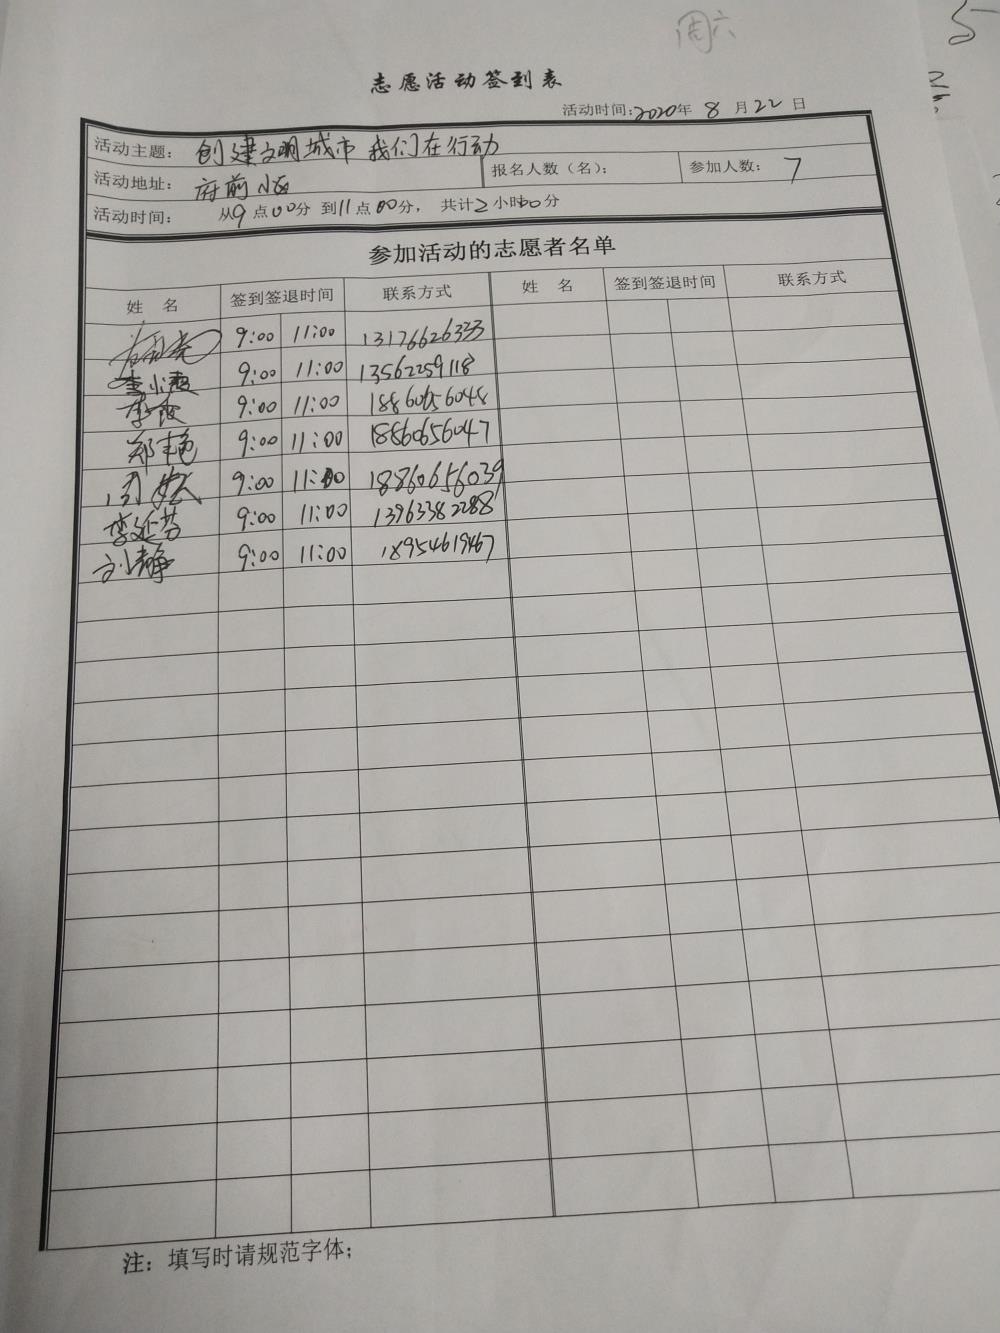 周六
志愿活动签到表
活动时间:2020年 8 月 22 日
活动主题： 创建文明城市 我们在行动
活动地址： 府前小区 报名人数（名）： 参加人数： 7
活动时间： 从9点00分 到11点00分， 共计2小时00分
参加活动的志愿者名单
姓 名 签到签退时间 联系方式 姓 名 签到签退时间 联系方式
9:00 11:00 13176626333
9:00 11:00 13562259118
李霞 9:00 11:00 18860656048
郑丰艳 9:00 11:00 18860656047
9:00 11:00 18860656039
李延芬 9:00 11:00 13963382288
刘静 9:00 11:00 18954619467
注：填写时请规范字体；